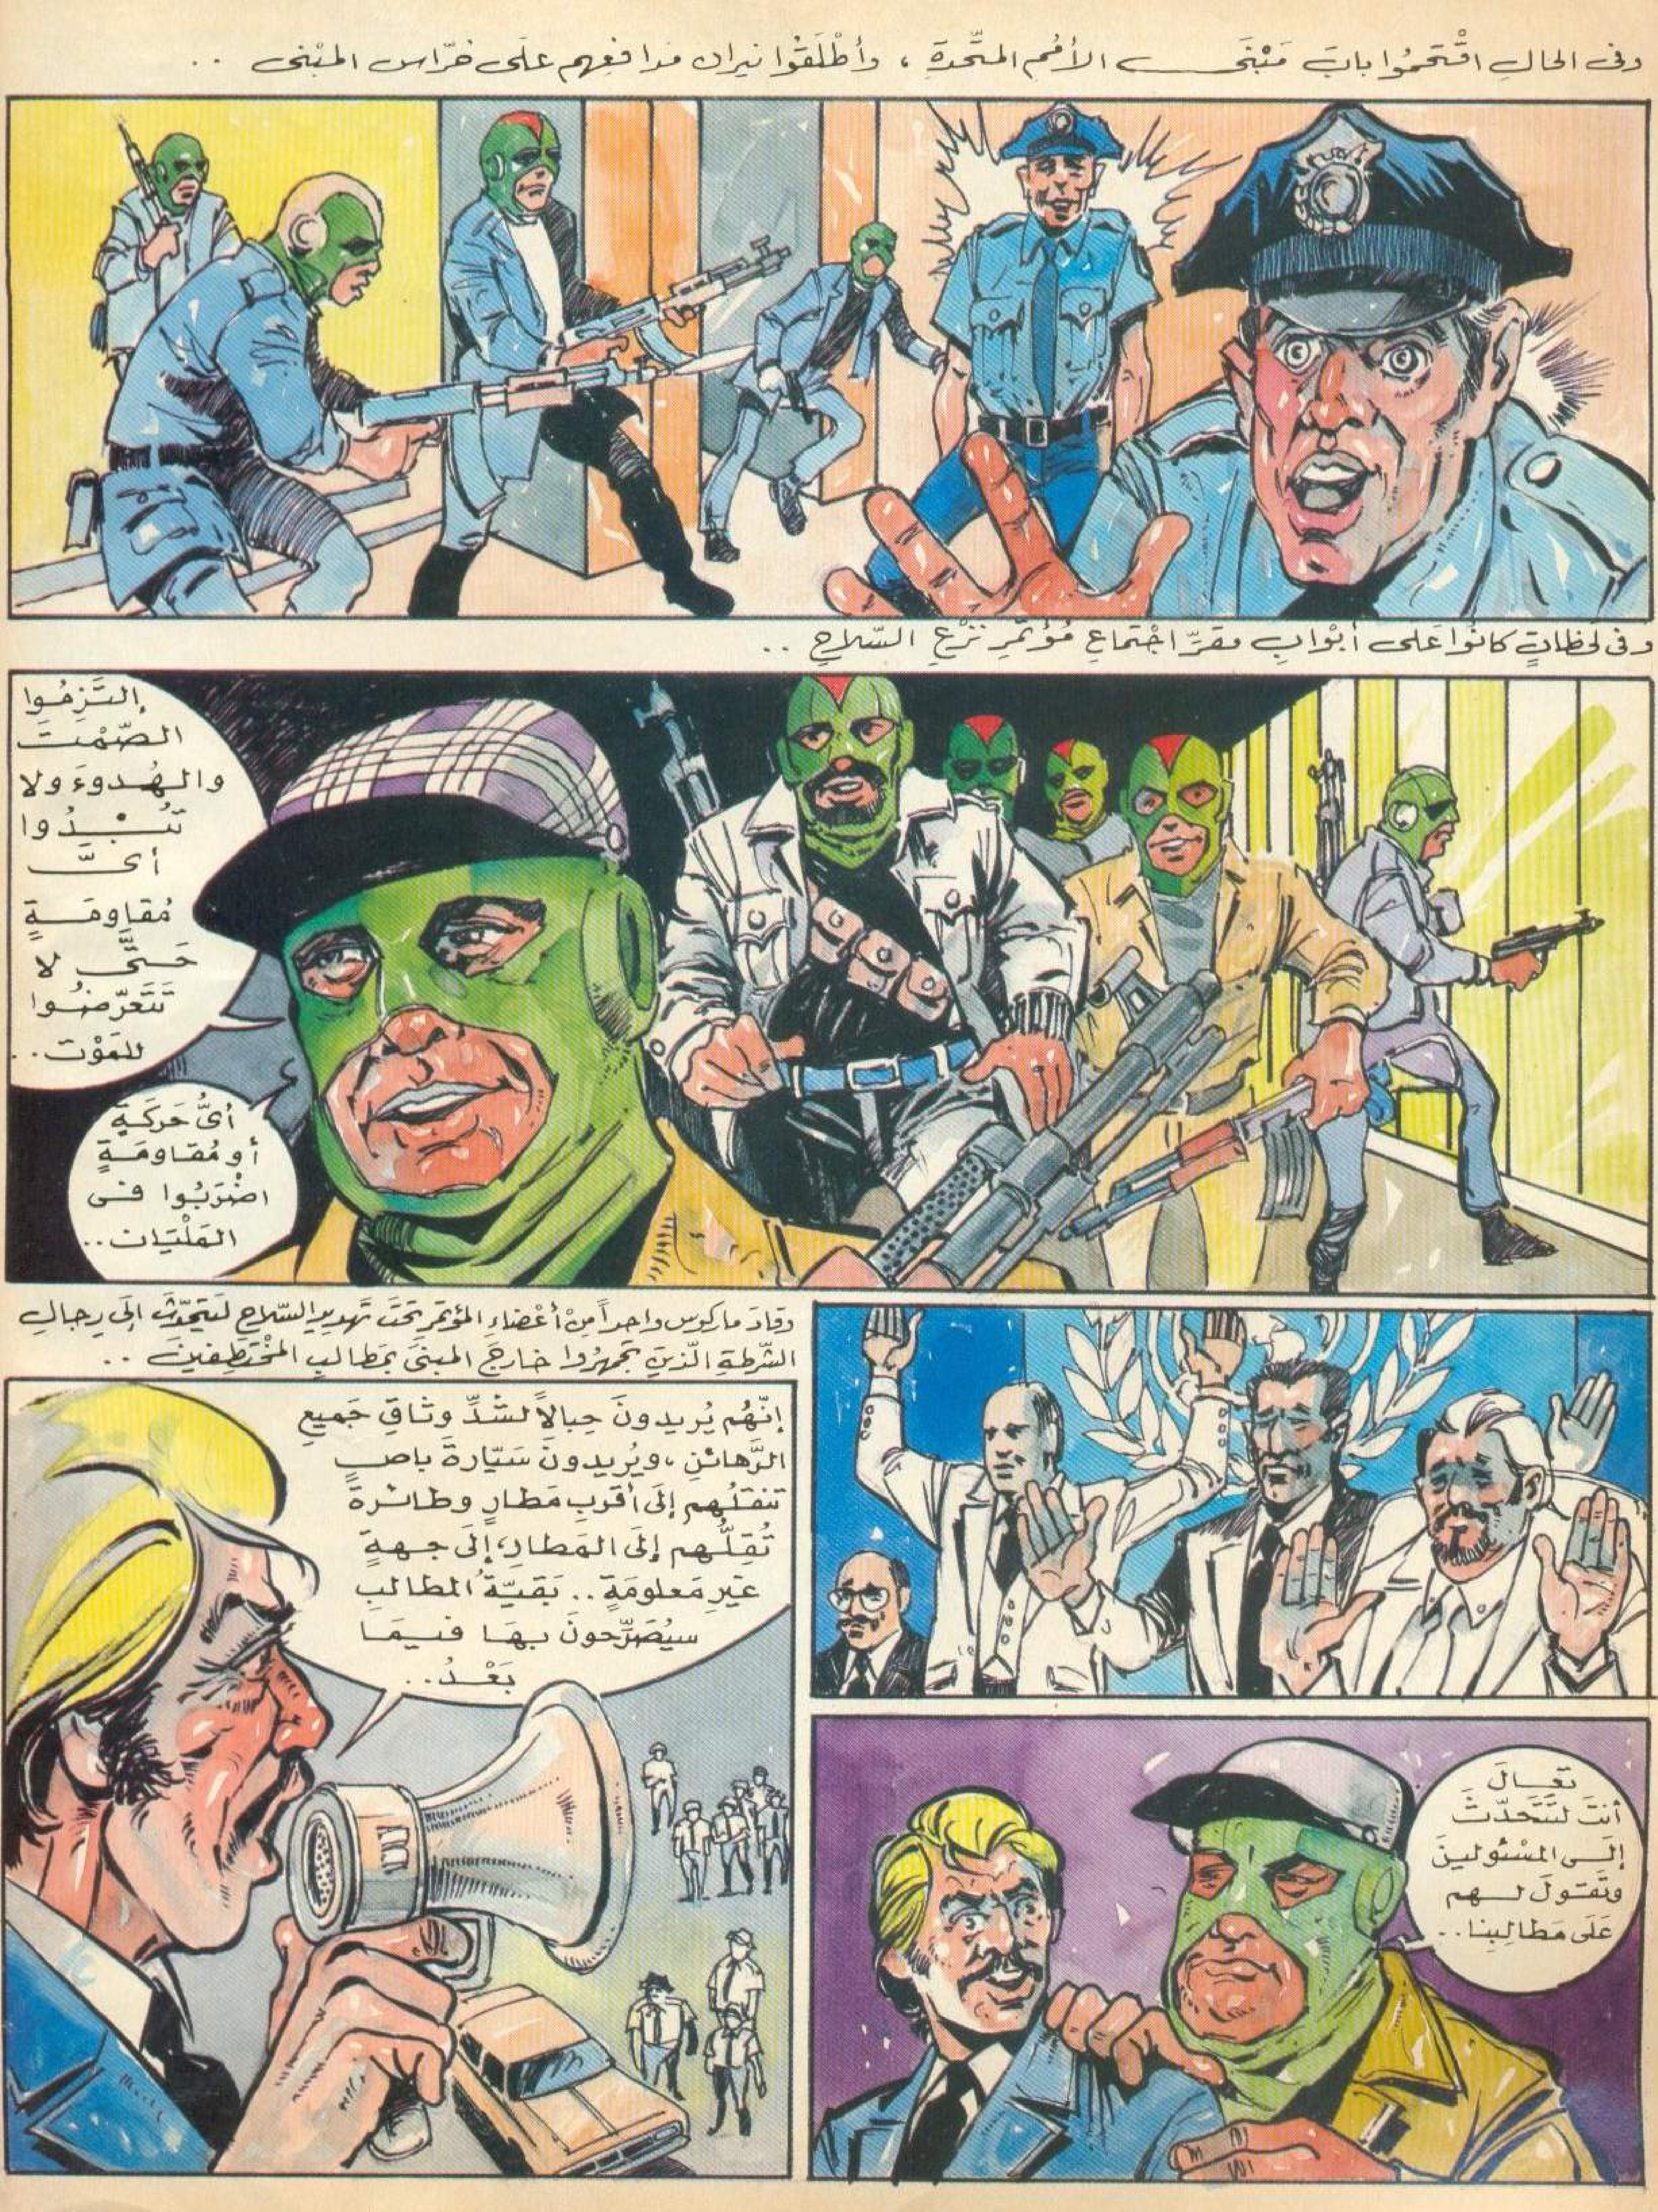 وفى الحال اقْتَحَمُوا بابَ مَبْنَى الأُمَم المتَّحدةِ ، وأطْلَقُوا نيران مدافعِهم على حُرّاس المبْنى ..
وفى لحظاتٍ كانُوا على أبْوابِ مقرّ اجْتماعِ مُؤتمرِ نَزْعِ السّلاح ..
إلتَزِمُوا
الصّمْتَ
والهُدوءَ ولا
تُبْدُوا
أىَّ
مُقاومَةٍ
حَتَّى لا
تَتَعرّضُوا
للمَوْت ..
أىُّ حَركَةٍ
أو مُقاومَةٍ
اضْرَبُوا فى
المَلْيَان ..
تَعَالَ
أنتَ لتَتَحَدّثَ
إلَى المسْئولينَ
وتَقولَ لهم
عَلَى مَطالِبِنا ..
وقادَ ماركوس واحداً مِنْ أعْضاءِ المؤتمر تحْتَ تهديدِ السّلاحِ لِيتَحدّثَ إلَى رِجالِ
الشّرطةِ الّذين تجمْهرُوا خارجَ المبنَى بمَطالبِ المُخْتَطِفينَ ..
إنّهُم يُريدونَ حِبالاً لشَدِّ وثَاقِ جَميعِ
الرَّهائنِ ، ويُريدونَ سَيّارةَ باص
تنقلُهم إلَى أقربِ مَطارٍ وطائرةً
تُقِلُّهم إلَى المَطارِ ، إلَى جهةٍ
غَيرِ مَعلومَةٍ .. بَقيّةُ المطالبِ
سيُصَرّحونَ بهَا فيمَا
بَعْدُ ..